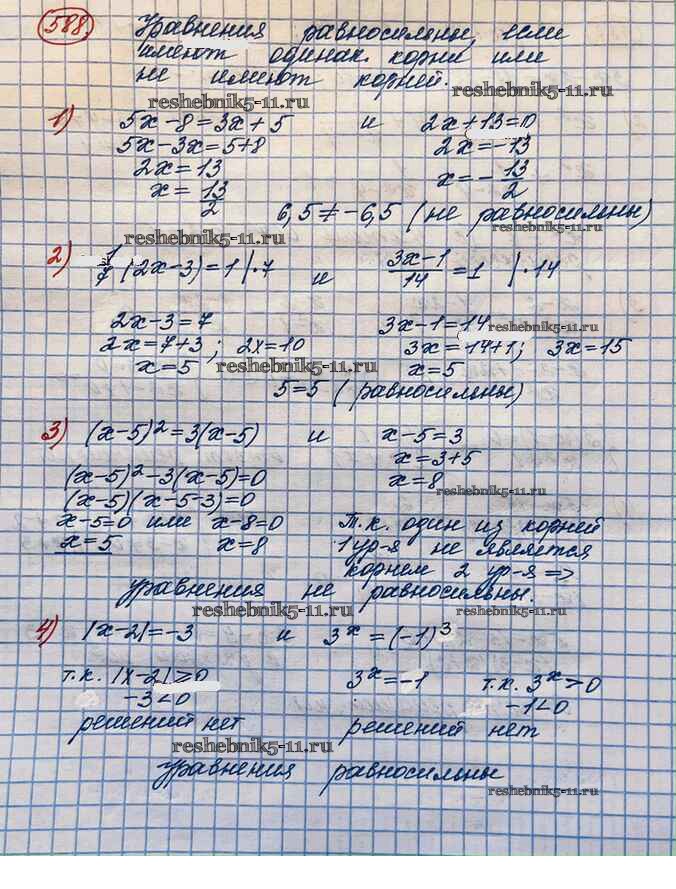 588. Уравнения равносильны, если
имеют одинак. корни или
не имеют корней.
reshebnik5-11.ru reshebnik5-11.ru
1) 5x-8=3x+5 и 2x+13=0
5x-3x=5+8 2x=-13
2x=13 x=-13/2
x=13/2
6,5≠-6,5 (не равносильны)
reshebnik5-11.ru reshebnik5-11.ru
2) 1/7 (2x-3)=1 |·7 и (3x-1)/14=1 |·14
2x-3=7 3x-1=14 reshebnik5-11.ru
2x=7+3; 2x=10 3x=14+1; 3x=15
x=5 reshebnik5-11.ru x=5
5=5 (равносильны)
3) (x-5)²=3(x-5) и x-5=3
x=3+5
(x-5)²-3(x-5)=0 x=8
reshebnik5-11.ru
(x-5)(x-5-3)=0
x-5=0 или x-8=0 Т.к. один из корней
x=5 x=8 1 ур-я не является
корнем 2 ур-я =>
уравнения не равносильны.
reshebnik5-11.ru reshebnik5-11.ru
4) |x-2|=-3 и 3ˣ=(-1)³
т.к. |x-2|≥0 3ˣ=-1 т.к. 3ˣ>0
-3<0 -1<0
решений нет решений нет
reshebnik5-11.ru
уравнения равносильны
reshebnik5-11.ru